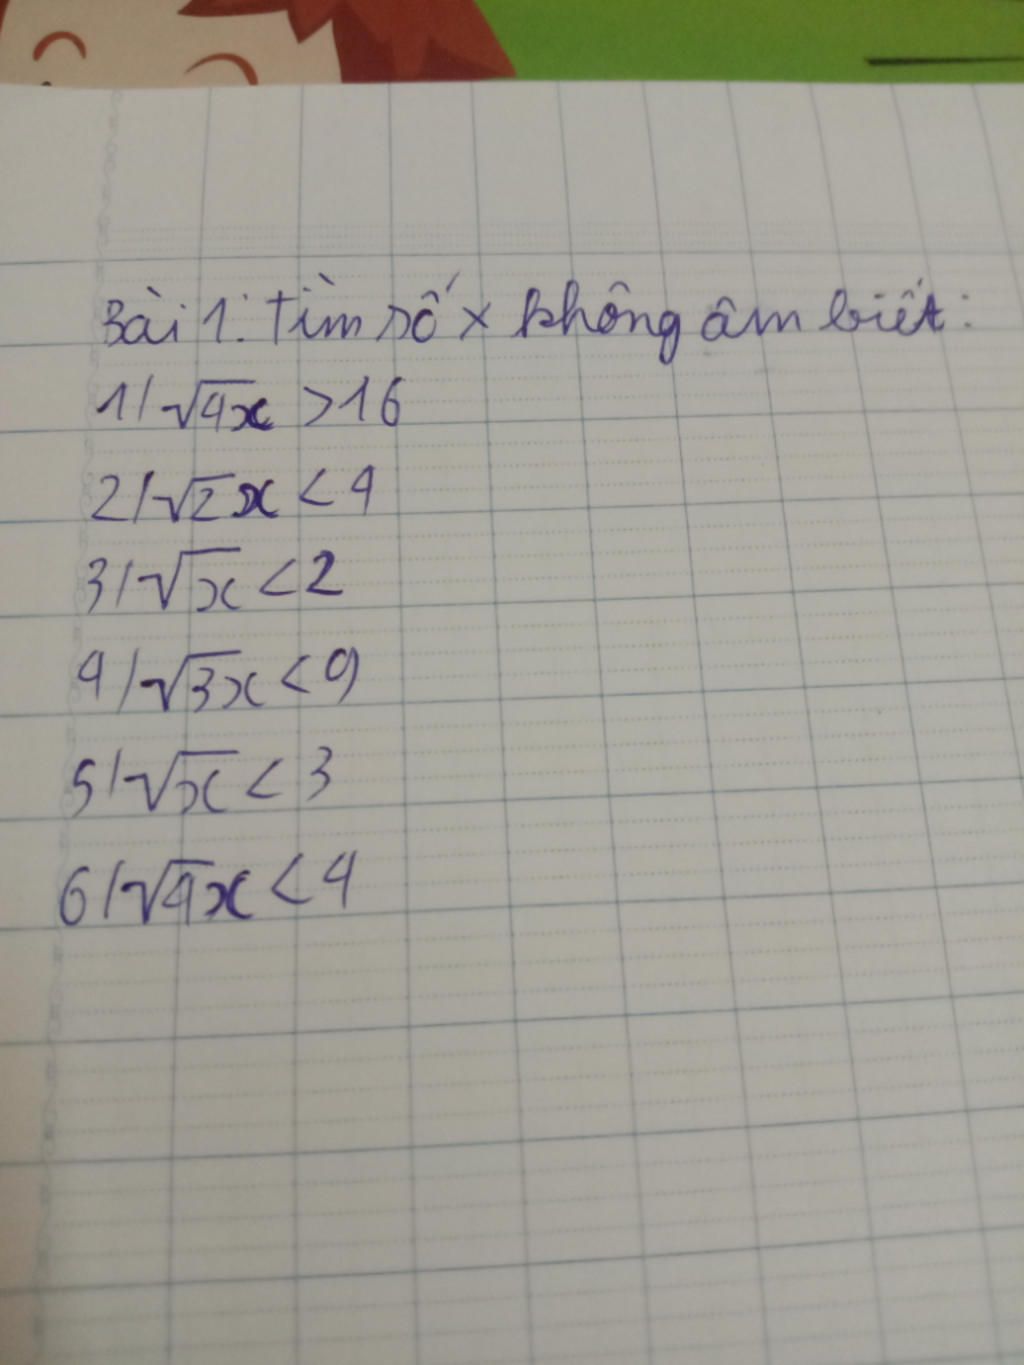 Bài 1: Tìm số x không âm biết:
1/ √4x > 16
2/ √2x < 4
3/ √x < 2
4/ √3x < 9
5/ √x < 3
6/ √4x < 4